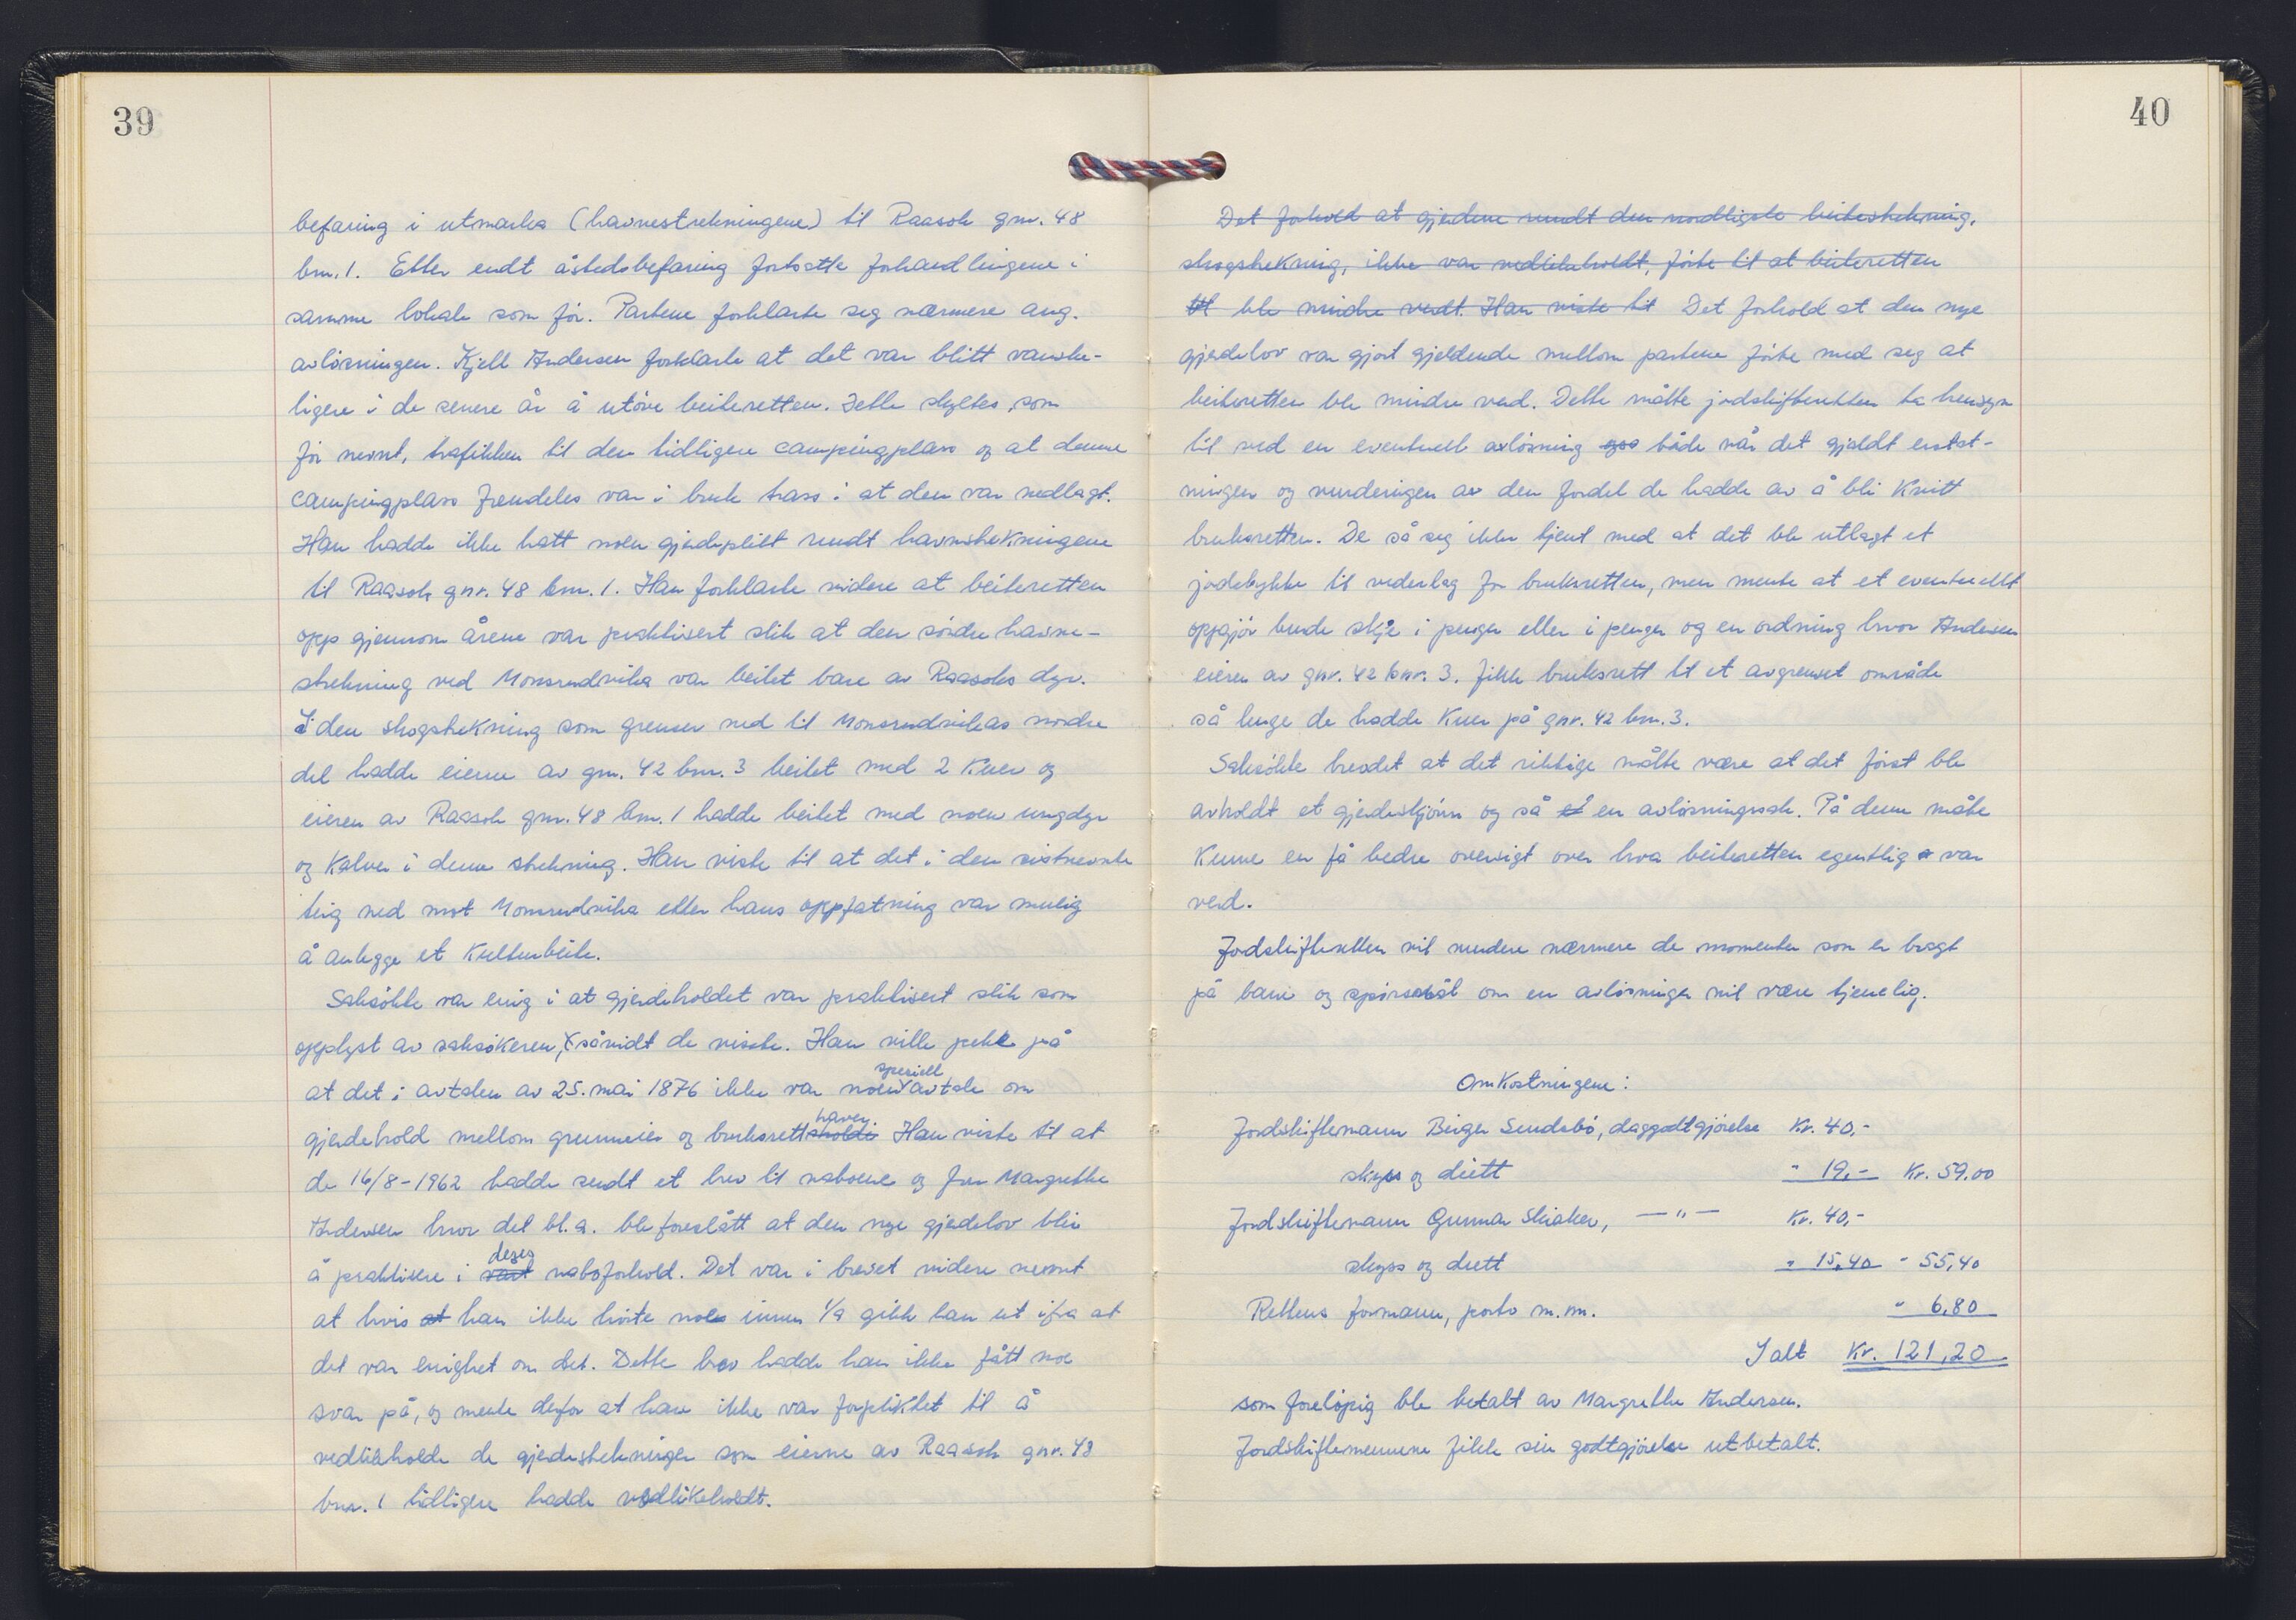 39
befaring i utmarka (havnestrekningene) til Raasok gnr. 48
bnr. 1. Etter endt åstedsbefaring fortsatte forhandlingene i
samme lokale som för. Partene forklarte seg nærmere ang.
avlösningen. Kjell Andersen forklarte at det var blitt vanske-
ligere i de senere år å utöve beiteretten. Dette skyltes, som
för nevnt, trafikken til den tidligere campingplass og at denne
campingplass fremdeles var i bruk trass i at den var nedlagt.
Han hadde ikke hatt noen gjerdeplikt rundt havnestrekningene
til Raasok gnr. 48 bnr. 1. Han forklarte videre at beiteretten
opp gjennom årene var praktisert slik at den söndre havne-
strekning ved Monsrudvika var beitet bare av Raasoks dyr.
I den skogstrekning som grenser ned til Monsrudvikas nordre
del hadde eierne av gnr. 42 bnr. 3 beitet med 2 kuer og
eieren av Raasok gnr. 48 bnr. 1 hadde beitet med noen ungdyr
og kalver i denne strekning. Han viste til at det i den sistnevnte
teig ned mot Monsrudvika etter hans oppfatning var mulig
å anlegge et kulturbeite.
Saksökte var enig i at gjerdeholdet var praktisert slik som
opplyst av saksökeren, såvidt de visste. Han ville peke på
at det i avtalen av 25. mai 1876 ikke var noen speciell avtale om
gjerdehold mellom grunneier og bruksrettsholdi haver. Han viste til at
de 16/8-1962 hadde sendt et brev til naboene og fru Margrethe
Andersen hvor det bl.a. ble foreslått at den nye gjerdelov blir
å praktisere i vårt deres naboforhold. Det var i brevet videre nevnt
at hvis at han ikke hörte noe innen 1/9 gikk han ut ifra at
det var enighet om det. Dette brev hadde han ikke fått noe
svar på, og mente derfor at han ikke var forpliktet til å
vedlikeholde de gjerdestrekninger som eierne av Raasok gnr. 48
bnr. 1 tidligere hadde vedlikeholdt.
40
Det forhold at gjerdene rundt den nordligste beitestrekning,
skogstrekning, ikke var vedlikeholdt, förte til at beiteretten
til ble mindre verdt. Han viste til Det forhold at den nye
gjerdelov var gjort gjeldende mellom partene förte med seg at
beiteretten ble mindre verd. Dette måtte jordskifteretten ta hensyn
til ved en eventuell avlösning også både når det gjaldt erstat-
ningen og vurderigen av den fordel de hadde av å bli kvitt
bruksretten. De så seg ikke tjent med at det ble utlagt et
jordstykke til vederlag for bruksretten, men mente at et eventuellt
oppgjör burde skje i penger eller i penger og en ordning hvor Andersen
eieren av gnr. 42 bnr. 3. fikk bruksrett til et avgrenset område
så lenge de hadde kuer på gnr. 42 bnr. 3.
Saksökte hevdet at det riktige måtte være at det först ble
avholdt et gjerdeskjönn og så en avlösningssak. På denne måte
kunne en få bedre oversigt over hva beiteretten egentlig var
verd.
Jordskifteretten vil vurdere nærmere de momenter som er bragt
på bane og spörsmål om en avlösninger vil være tjenelig.
Omkostningene:
Jordskiftemann Birger Sundsbö, daggodtgjörelse Kr. 40,-
skyss og diett " 19,- Kr. 59.00
Jordskiftemann Gunnar Skiaker, —"— Kr. 40,-
skyss og diett " 15,40 " 55,40
Rettens formann, porto m.m. " 6,80
I alt Kr. 121,20
som forelöpig ble betalt av Margrethe Andersen.
Jordskiftemennene fikk sin godtgjörelse utbetalt.